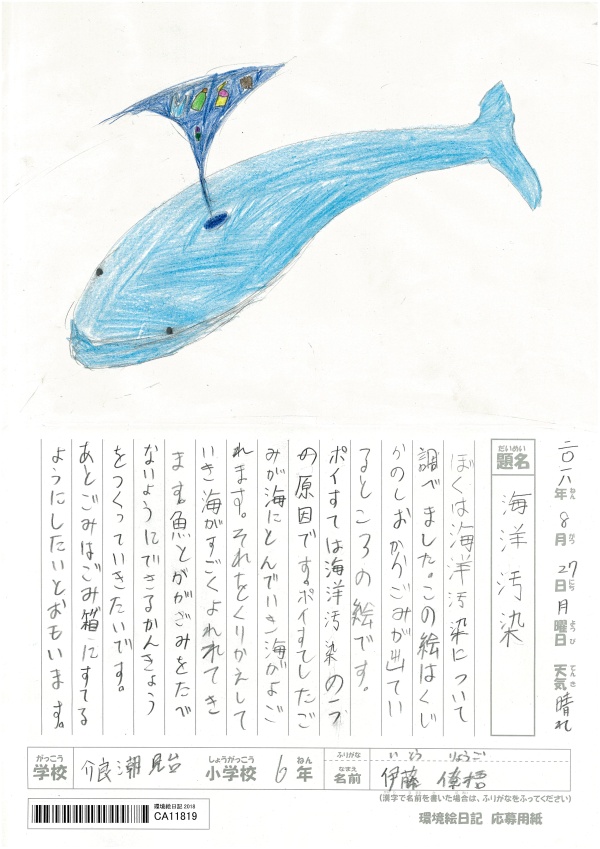 二〇一八年8月27日月曜日 天気晴れ
ねん がつ にち ようび てんき
だいめい
題名 海洋汚染
ぼくは海洋汚染について
調べました。この絵はくじ
らのしおからごみが出てい
るところの絵です。
ポイすては海洋汚染の一つ
の原因です。ポイすてしたご
みが海にとんでいき海がよご
れます。それをくりかえして
いき海がすごくよれれてき
ます。魚とががごみをたべ
ないようにできるかんきょう
をつくっていきたいです。
あとごみはごみ箱にすてる
ようにしたいとおもいます。
がっこう しょうがっこう ねん
学校 介良潮見台 小学校 6年
ふりがな いとう りょうご
なまえ
名前 伊藤 僚梧
(漢字で名前を書いた場合は、ふりがなをふってください)
環境絵日記 2018
CA11819
環境絵日記 応募用紙